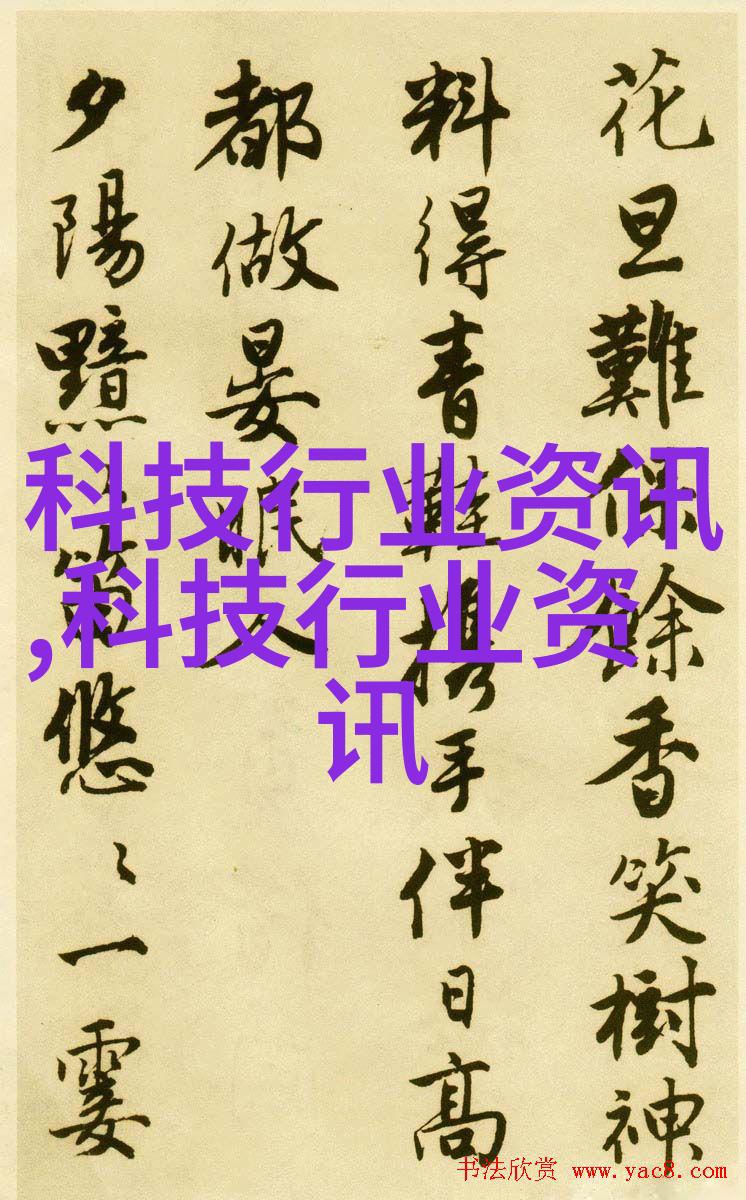 花旦難保餘香笑樹神
料得青鞋携手伴日高
都做晏眠人
夕陽黯〻笛悠〻一霎
科技行业资讯
,科技行业资
讯
书法欣赏 www.yac8.com